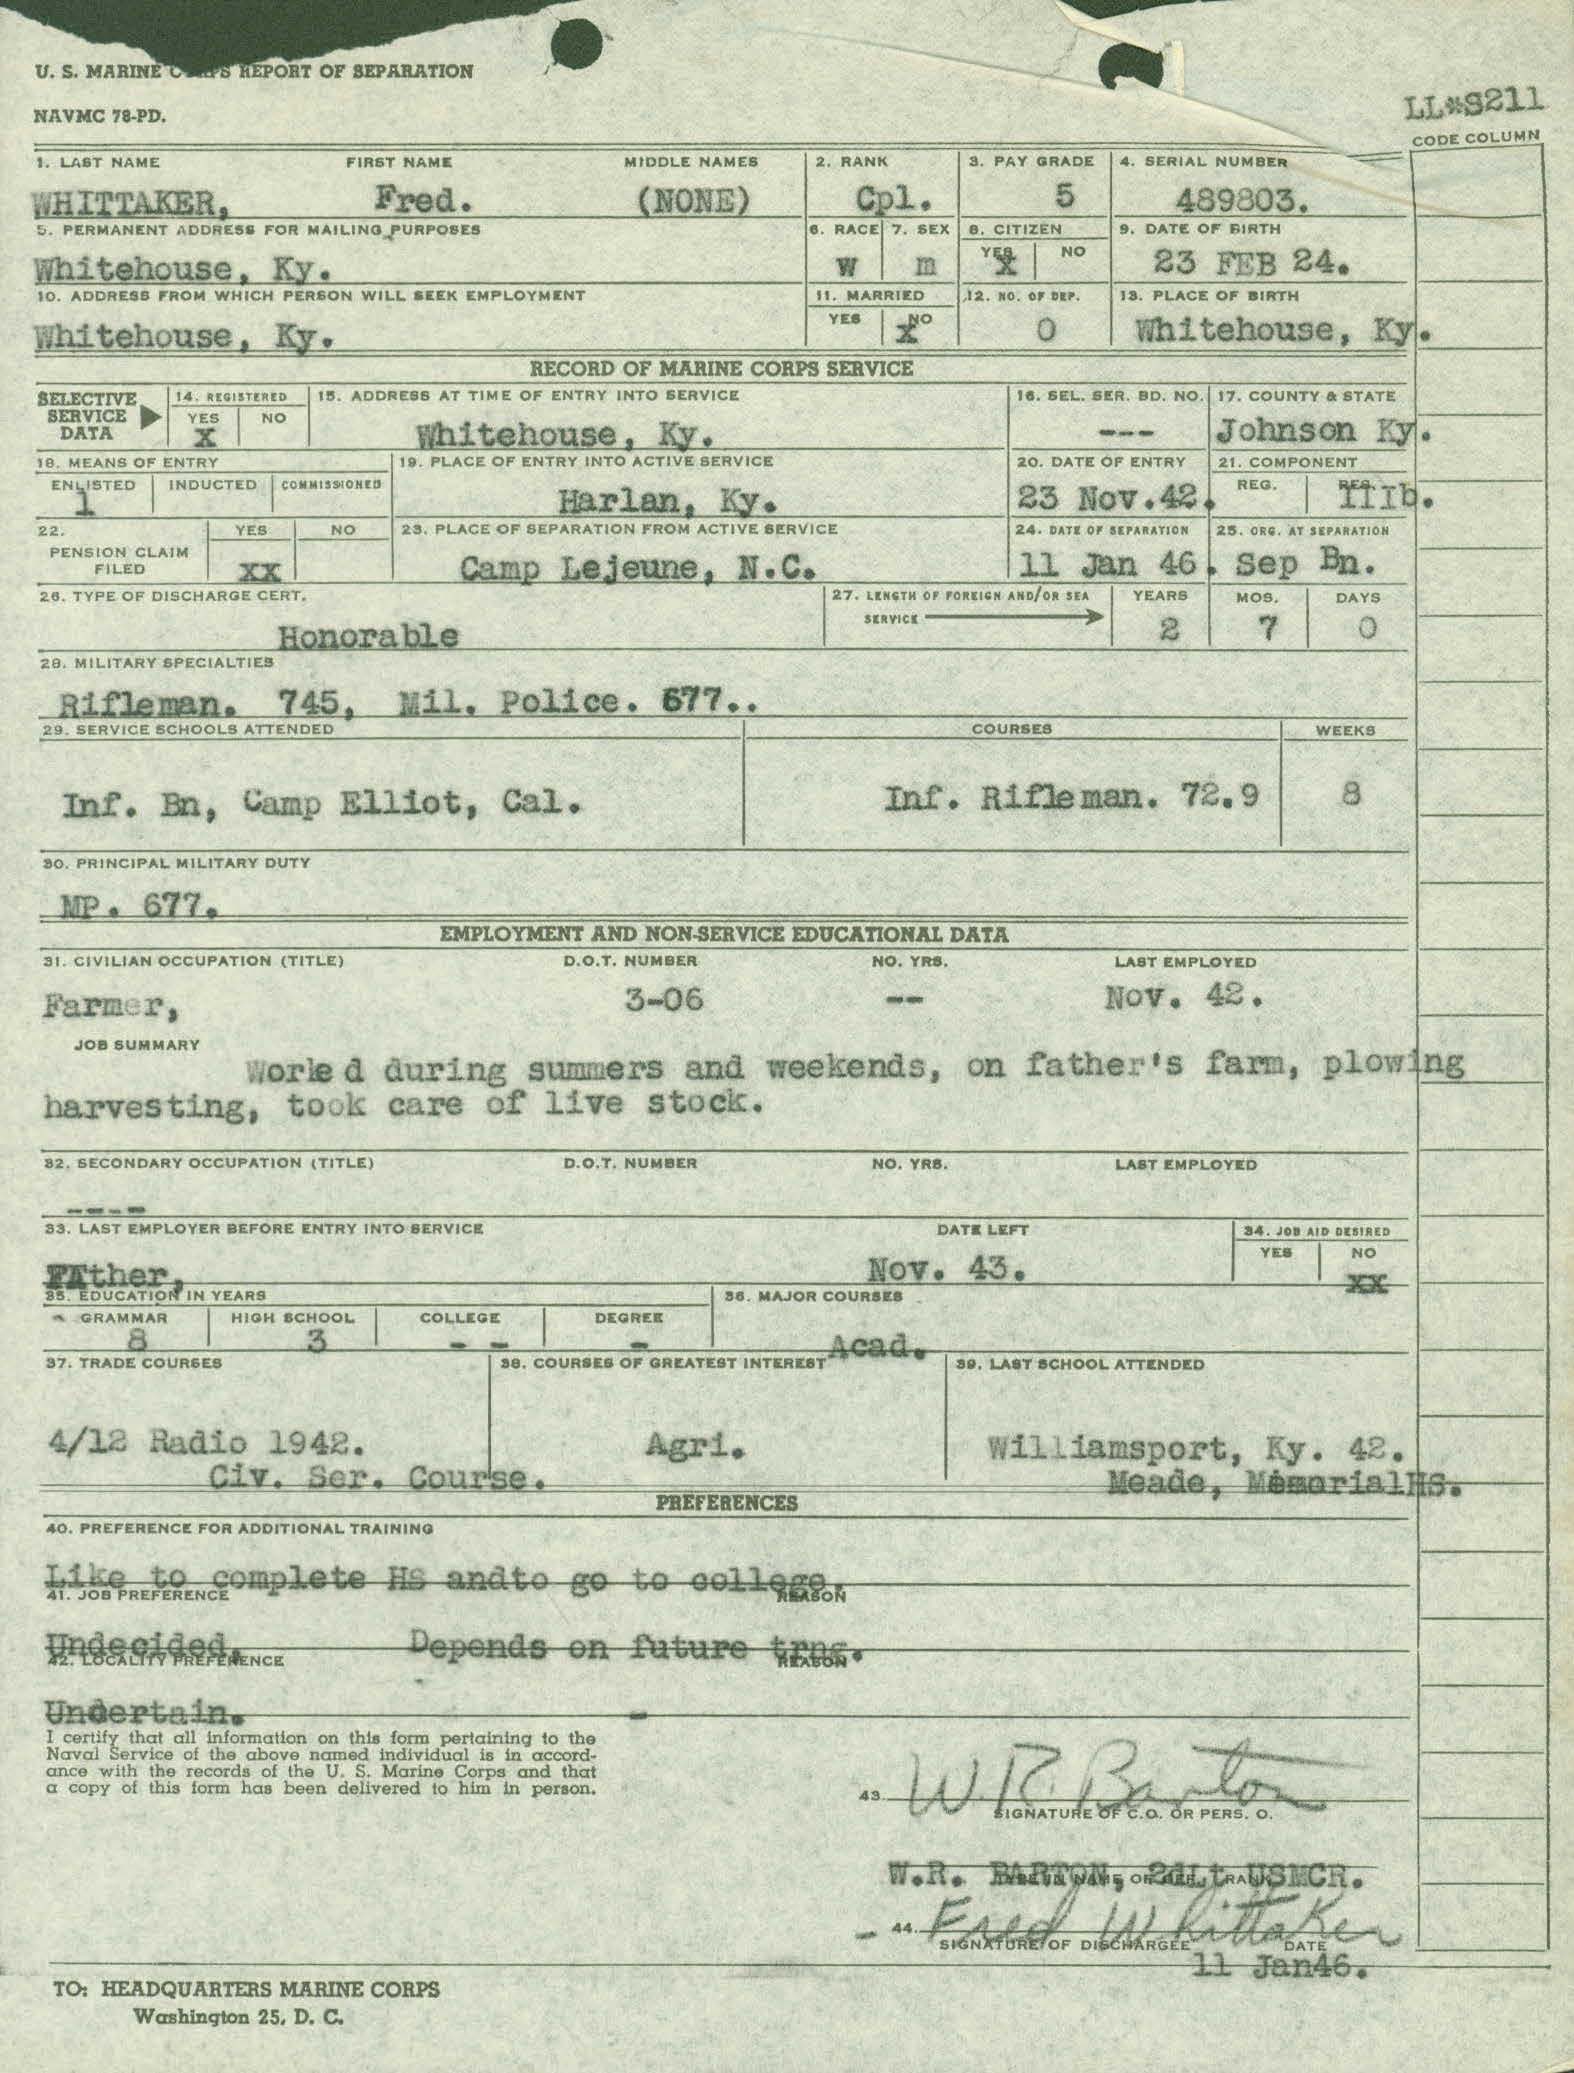 U. S. MARINE CORPS REPORT OF SEPARATION
NAVMC 78-PD.
LL*S211
CODE COLUMN
1. LAST NAME FIRST NAME MIDDLE NAMES 2. RANK 3. PAY GRADE 4. SERIAL NUMBER
WHITTAKER, Fred. (NONE) Cpl. 5 489803.
5. PERMANENT ADDRESS FOR MAILING PURPOSES 6. RACE 7. SEX 8. CITIZEN 9. DATE OF BIRTH
YES NO
Whitehouse, Ky. W m X 23 FEB 24.
10. ADDRESS FROM WHICH PERSON WILL SEEK EMPLOYMENT 11. MARRIED 12. NO. OF DEP. 13. PLACE OF BIRTH
YES NO
Whitehouse, Ky. X 0 Whitehouse, Ky.
RECORD OF MARINE CORPS SERVICE
SELECTIVE SERVICE DATA 14. REGISTERED 15. ADDRESS AT TIME OF ENTRY INTO SERVICE 16. SEL. SER. BD. NO. 17. COUNTY & STATE
YES NO
X Whitehouse, Ky. --- Johnson Ky.
18. MEANS OF ENTRY 19. PLACE OF ENTRY INTO ACTIVE SERVICE 20. DATE OF ENTRY 21. COMPONENT
ENLISTED INDUCTED COMMISSIONED REG. RES.
1 Harlan, Ky. 23 Nov.42. IIIb.
22. YES NO 23. PLACE OF SEPARATION FROM ACTIVE SERVICE 24. DATE OF SEPARATION 25. ORG. AT SEPARATION
PENSION CLAIM
FILED XX Camp Lejeune, N.C. 11 Jan 46. Sep Bn.
26. TYPE OF DISCHARGE CERT. 27. LENGTH OF FOREIGN AND/OR SEA YEARS MOS. DAYS
SERVICE
Honorable 2 7 0
28. MILITARY SPECIALTIES
Rifleman. 745, Mil. Police. 677..
29. SERVICE SCHOOLS ATTENDED COURSES WEEKS
Inf. Bn, Camp Elliot, Cal. Inf. Rifleman. 72.9 8
30. PRINCIPAL MILITARY DUTY
MP. 677.
EMPLOYMENT AND NON-SERVICE EDUCATIONAL DATA
31. CIVILIAN OCCUPATION (TITLE) D.O.T. NUMBER NO. YRS. LAST EMPLOYED
Farmer, 3-06 -- Nov. 42.
JOB SUMMARY
Worked during summers and weekends, on father's farm, plowing
harvesting, took care of live stock.
32. SECONDARY OCCUPATION (TITLE) D.O.T. NUMBER NO. YRS. LAST EMPLOYED
----
33. LAST EMPLOYER BEFORE ENTRY INTO SERVICE DATE LEFT 34. JOB AID DESIRED
YES NO
FAther, Nov. 43. XX
35. EDUCATION IN YEARS 36. MAJOR COURSES
GRAMMAR HIGH SCHOOL COLLEGE DEGREE
8 3 - - - Acad.
37. TRADE COURSES 38. COURSES OF GREATEST INTEREST 39. LAST SCHOOL ATTENDED
4/12 Radio 1942. Agri. Williamsport, Ky. 42.
Civ. Ser. Course. Meade, MemorialHS.
PREFERENCES
40. PREFERENCE FOR ADDITIONAL TRAINING
Like to complete HS andto go to college.
41. JOB PREFERENCE REASON
Undecided, Depends on future trng.
42. LOCALITY PREFERENCE REASON
Undertain. -
I certify that all information on this form pertaining to the
Naval Service of the above named individual is in accord-
ance with the records of the U. S. Marine Corps and that
a copy of this form has been delivered to him in person.
43. W. R. Barton
SIGNATURE OF C.O. OR PERS. O.
W.R. BARTON, 2dLt USMCR.
44. Fred Whittaker
SIGNATURE OF DISCHARGEE DATE
11 Jan46.
TO: HEADQUARTERS MARINE CORPS
Washington 25, D. C.